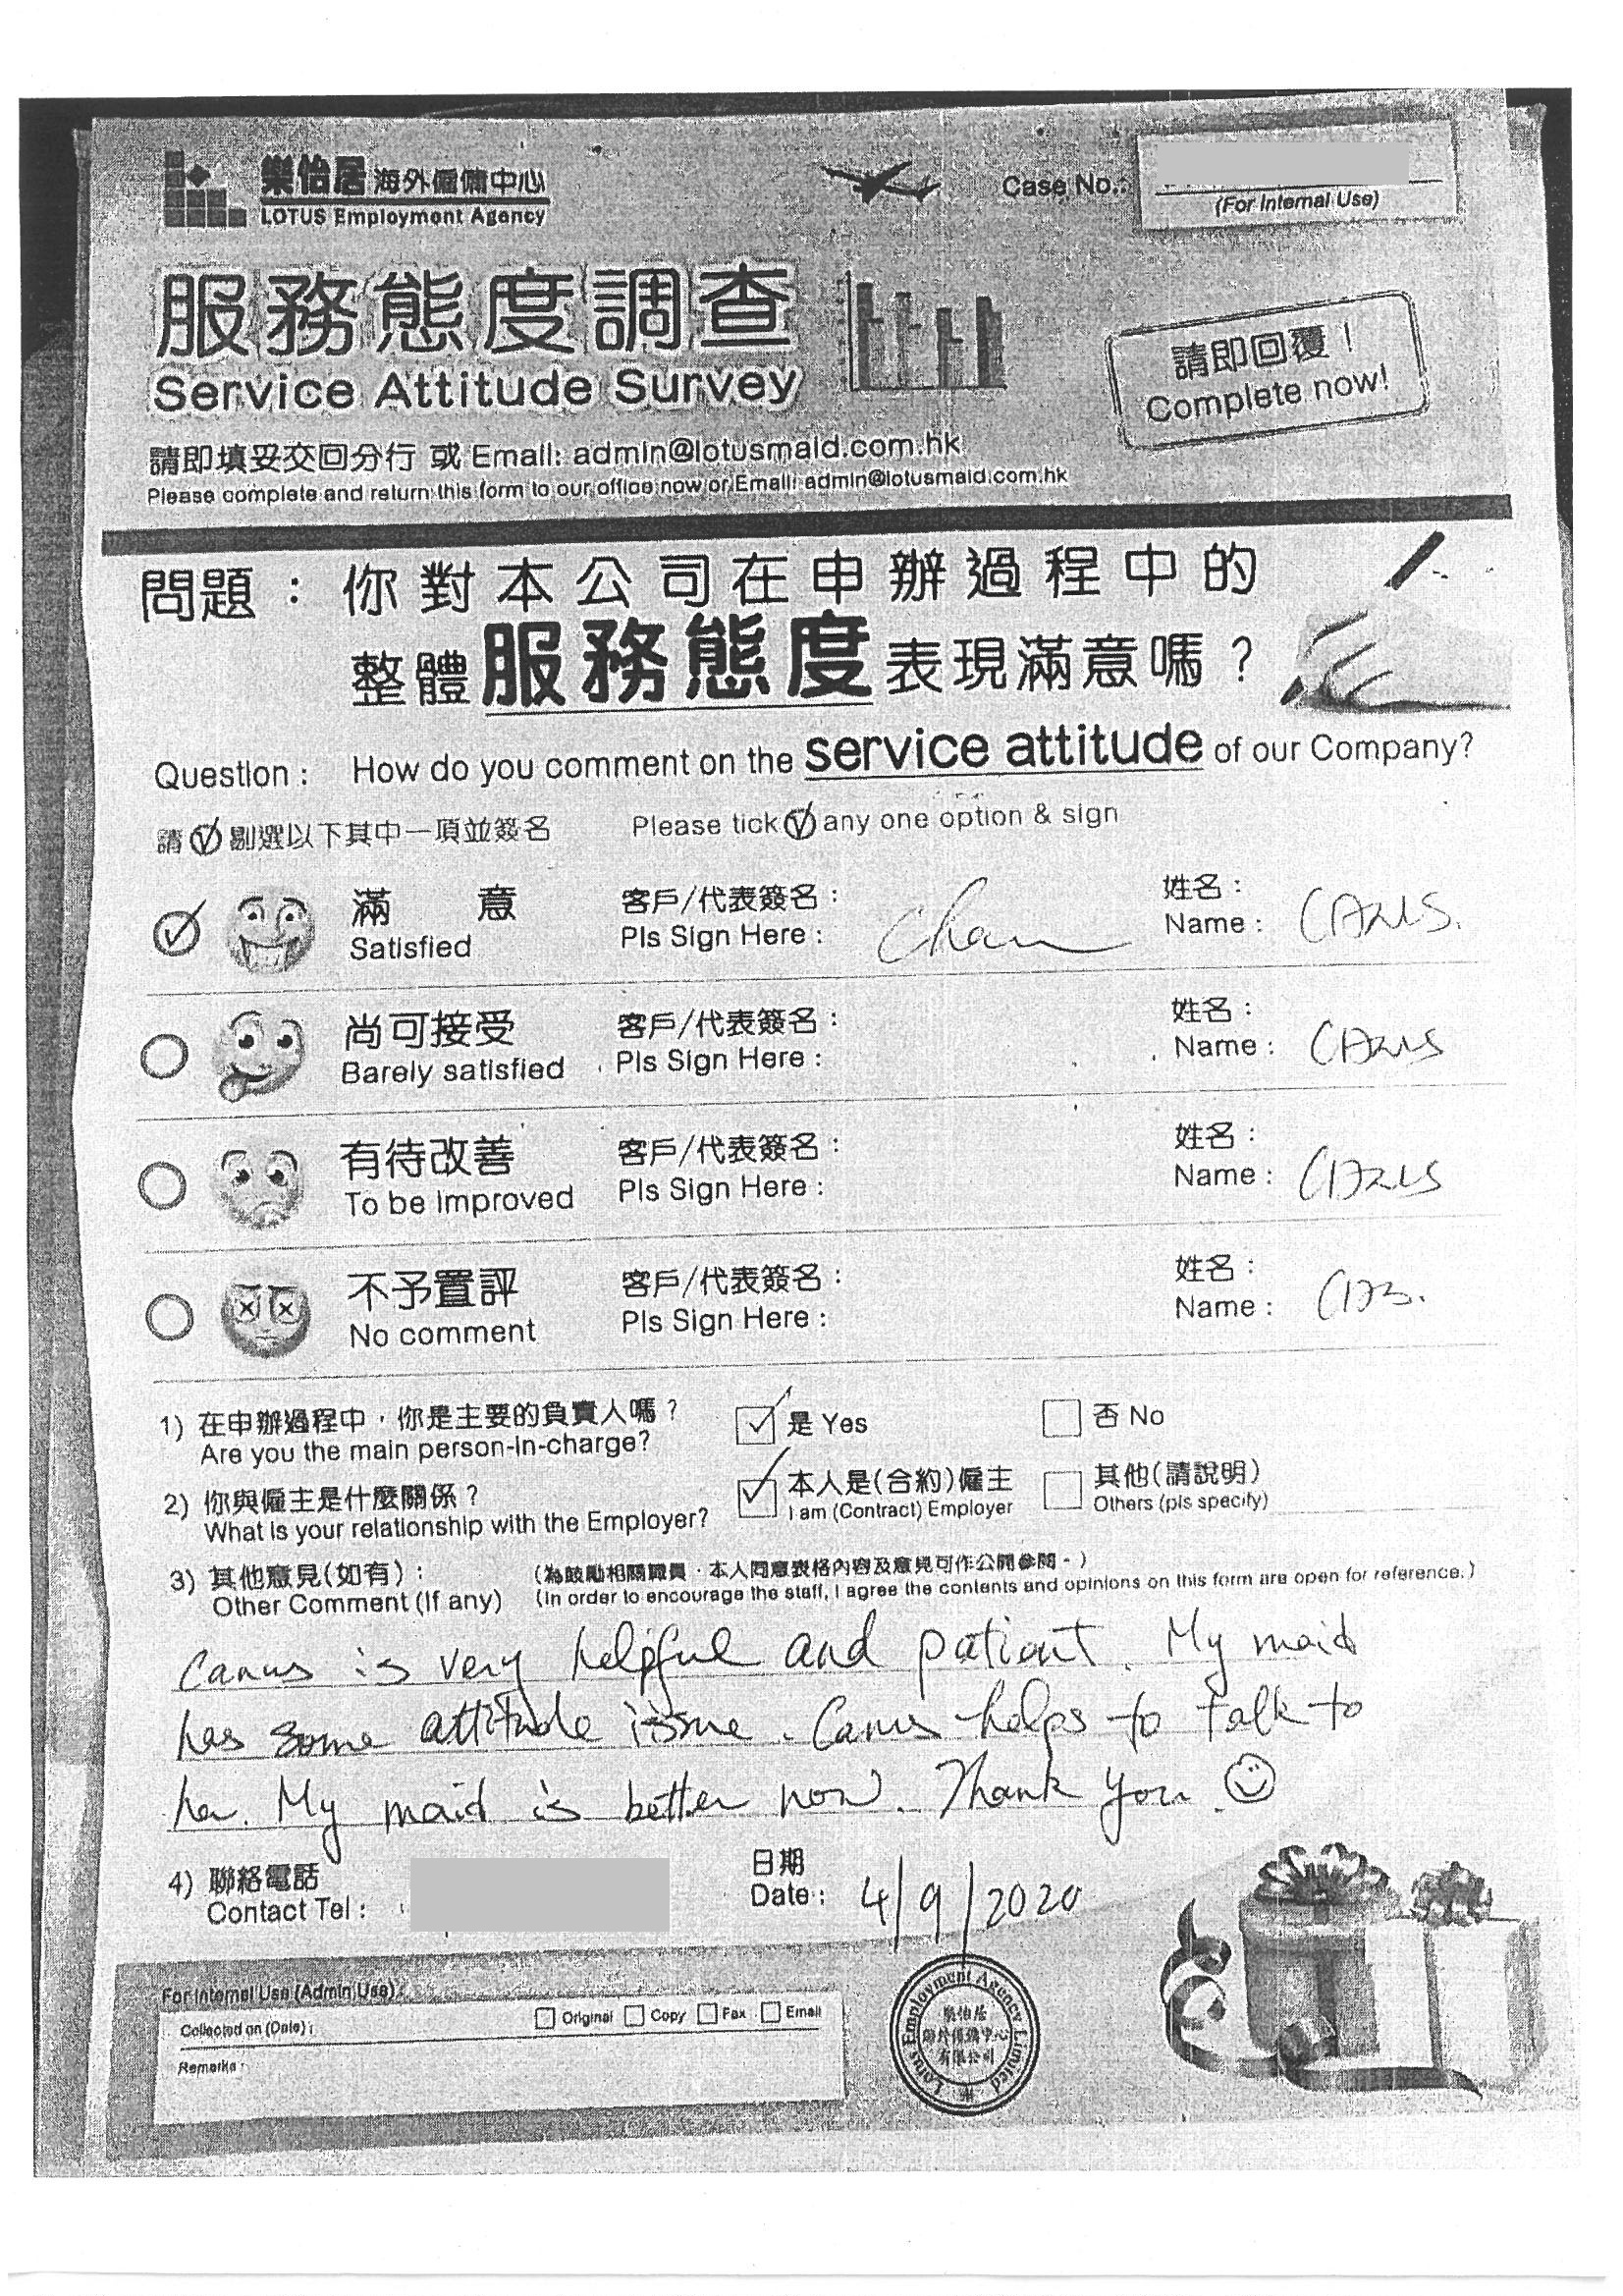 樂怡居 海外僱傭中心
LOTUS Employment Agency
Case No.:
(For Internal Use)
服務態度調查
Service Attitude Survey
請即回覆！
Complete now!
請即填妥交回分行 或 Email: admin@lotusmaid.com.hk
Please complete and return this form to our office now or Email: admin@lotusmaid.com.hk
問題：你對本公司在申辦過程中的
整體服務態度表現滿意嗎？
Question : How do you comment on the service attitude of our Company?
請 剔選以下其中一項並簽名 Please tick any one option & sign
滿 意 客戶/代表簽名： 姓名：
Satisfied Pls Sign Here : Chan Name :
尚可接受 客戶/代表簽名： 姓名：
Barely satisfied Pls Sign Here : Name :
有待改善 客戶/代表簽名： 姓名：
To be improved Pls Sign Here : Name :
不予置評 客戶/代表簽名： 姓名：
No comment Pls Sign Here : Name :
1) 在申辦過程中，你是主要的負責人嗎？ 是 Yes 否 No
Are you the main person-in-charge?
2) 你與僱主是什麼關係？ 本人是(合約)僱主 其他(請說明)
What is your relationship with the Employer? I am (Contract) Employer Others (pls specify)
3) 其他意見(如有)： (為鼓勵相關職員，本人同意表格內容及意見可作公開參閱。)
Other Comment (If any) (In order to encourage the staff, I agree the contents and opinions on this form are open for reference.)
is very helpful and patient. My maid
has some attitude issue. helps to talk to
her. My maid is better now. Thank you.
4) 聯絡電話 日期
Contact Tel : Date : 4/9/2020
For Internal Use (Admin Use) :
Collected on (Date) : Original Copy Fax Email
Remarks :
Lotus Employment Agency Limited
樂怡居
海外僱傭中心
有限公司